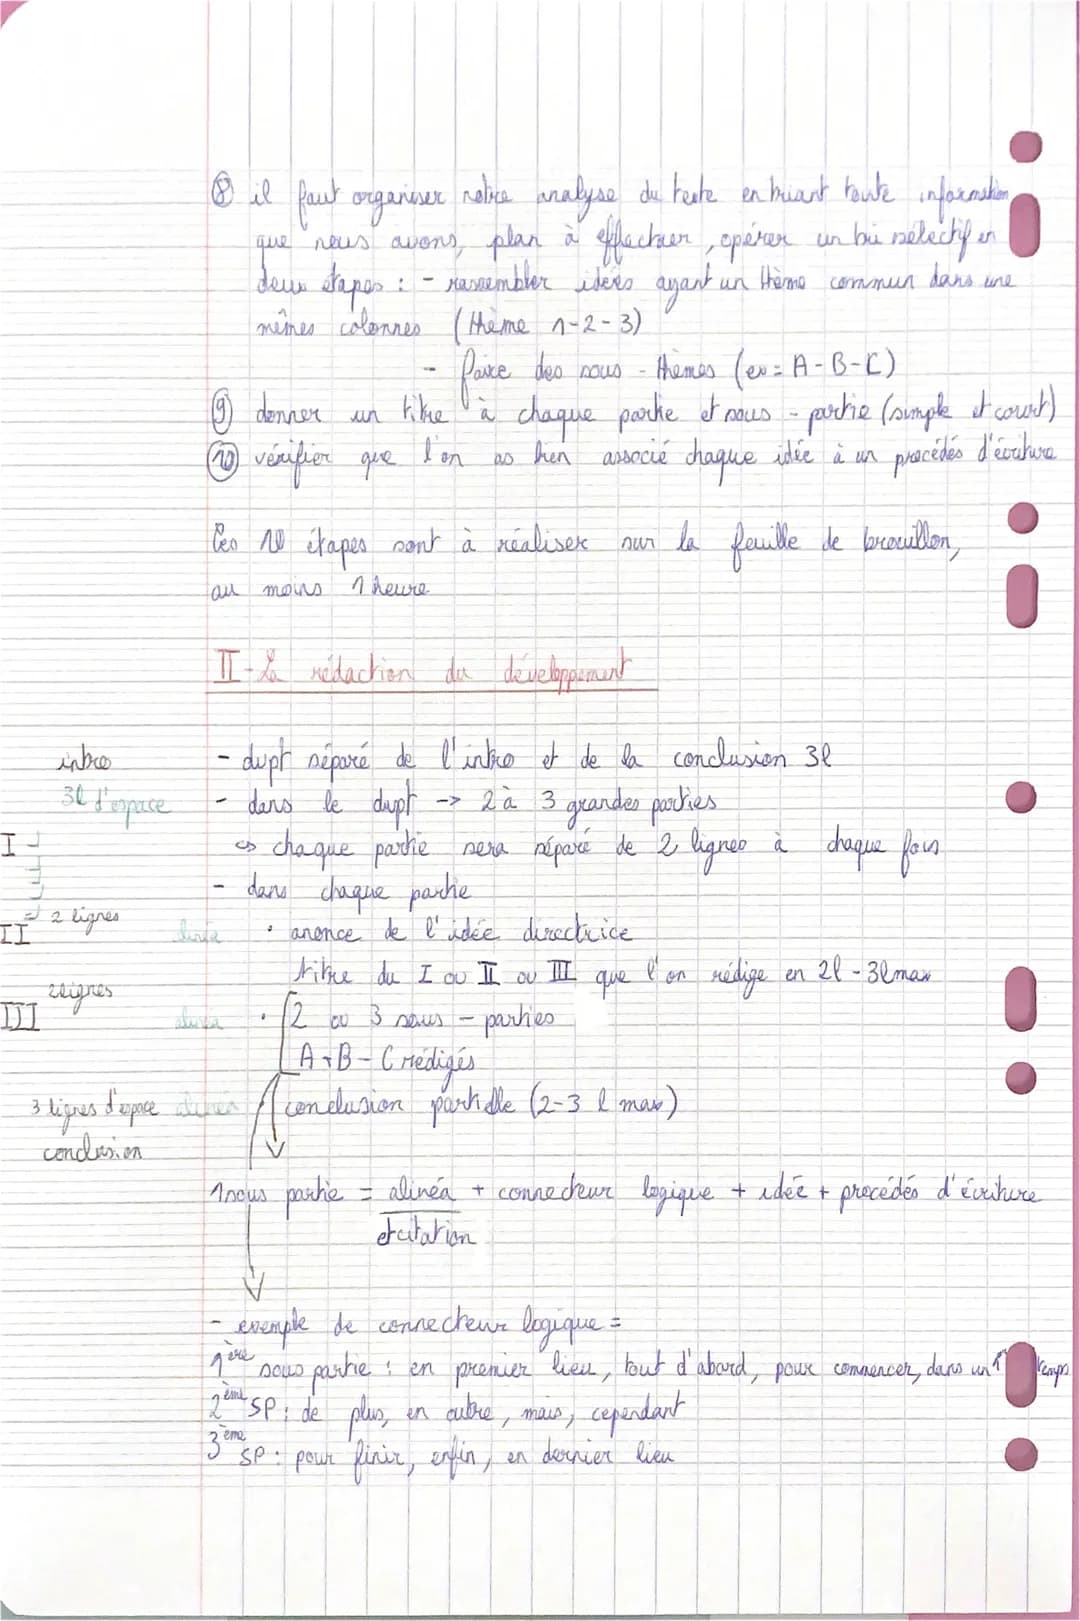 ⑧ il faut organiser notre analyse du texte en triant toute information
que nous avons, plan à effectuer, opérer un tri sélectif en
deux étapes : - rassembler idées ayant un thème commun dans une
mêmes colonnes (thème 1-2-3)
- faire des sous - thèmes (ex = A-B-C)
⑨ donner un titre à chaque partie et sous - partie (simple et court)
⑩ vérifier que l'on as bien associé chaque idée à un procédés d'écriture
Ces 10 étapes sont à réaliser sur la feuille de brouillon,
au moins 1 heure
II - La rédaction du développement
intro
3l d'espace
I
2 lignes
II
2lignes
III
3 lignes d'espace
conclusion
- dvpt séparé de l'intro et de la conclusion 3l
- dans le dvpt -> 2 à 3 grandes parties
↳ chaque partie sera séparé de 2 lignes à chaque fois
- dans chaque partie
alinéa • anonce de l'idée directrice
titre du I ou II ou III que l'on rédige en 2l - 3l max
alinéa • 2 ou 3 sous - parties
A + B - C rédigés
alinéa conclusion partielle (2-3 l max)
1 sous partie = alinéa + connecteur logique + idée + procédés d'écriture
et citation
- exemple de connecteur logique =
1ère sous partie : en premier lieu, tout d'abord, pour commencer, dans un 1er temps
2ème SP : de plus, en outre, mais, cependant
3ème SP : pour finir, enfin, en dernier lieu